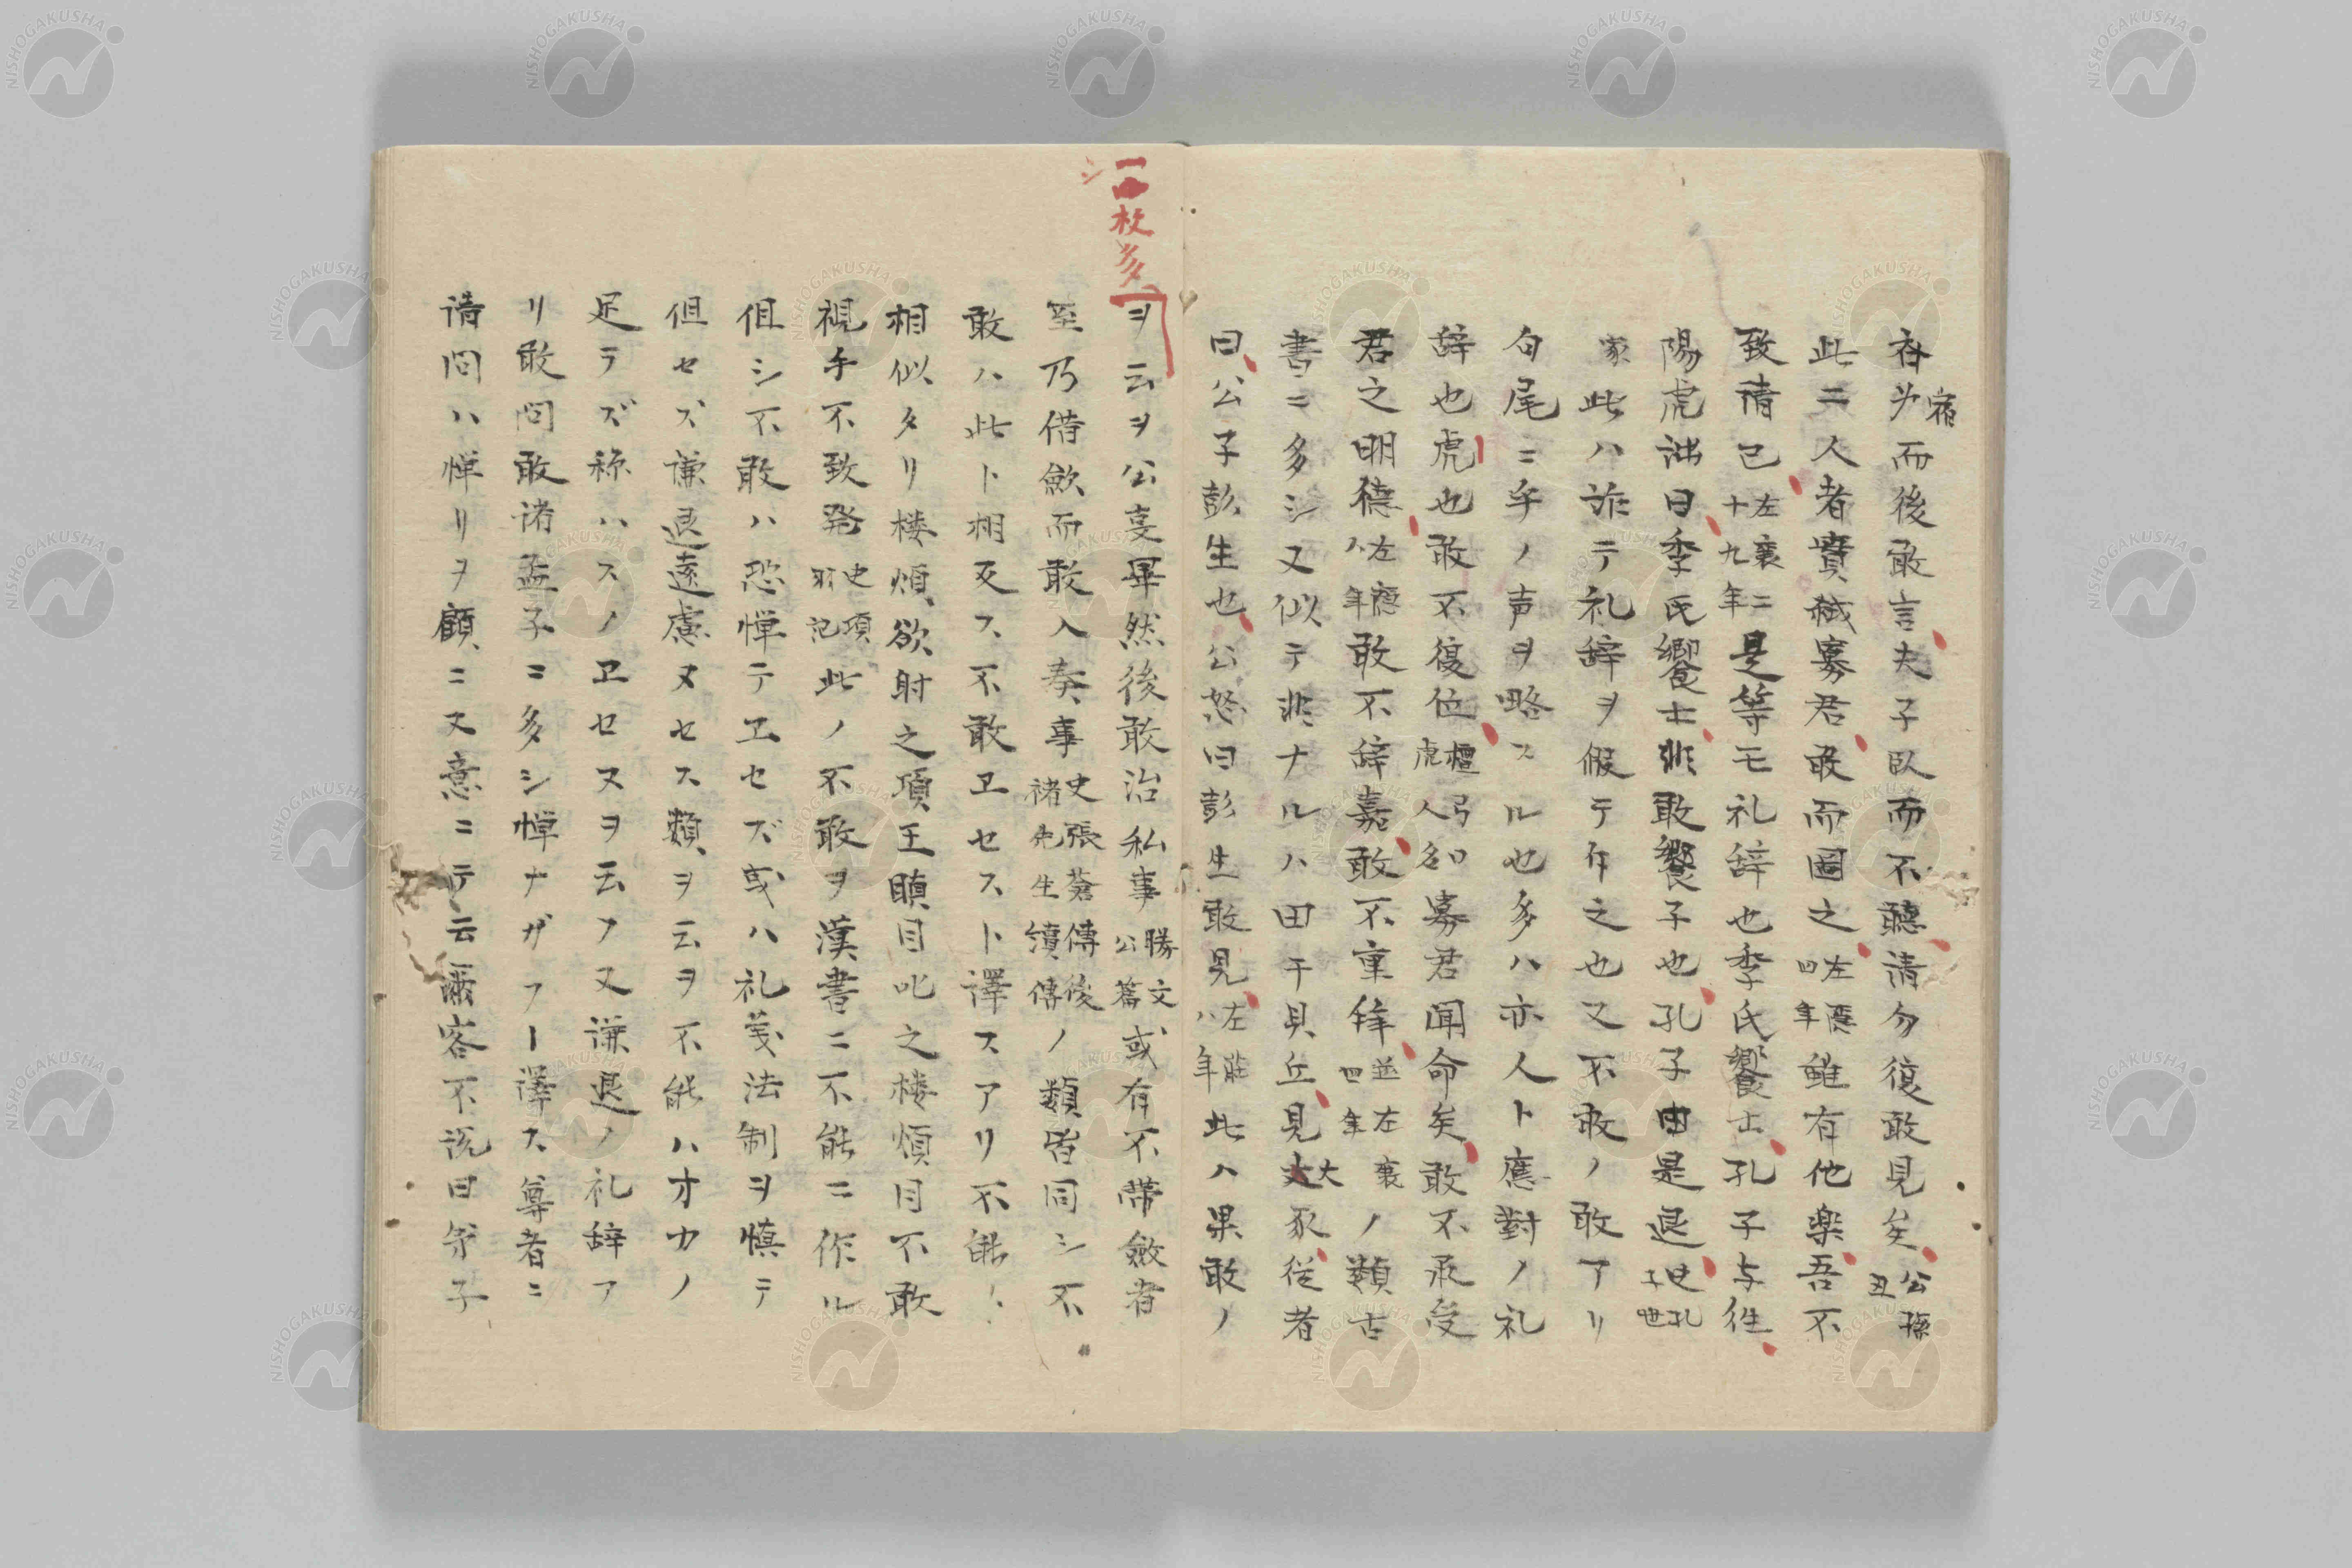 宿
而後敢言夫子臥而不聽請勿復敢見矣公孫丑
此二人者實弑寡君敢而圖之左隱四年雖有他楽吾不
致請已左襄二十九年是等モ礼辞也季氏饗士孔子与往
陽虎詘曰季氏饗士非敢饗子也孔子由是退史孔子世
家此ハ詐テ礼辞ヲ假テ作之也又不敢ノ敢アリ
句尾ニ乎ノ声ヲ略スル也多ハ亦人ト應對ノ礼
辞也虎也敢不復位檀弓虎人名寡君聞命矣敢不承受
君之明德左隱八年敢不辞嘉敢不重拜並左襄四年ノ類古
書ニ多シ又似テ非ナルハ田于貝丘見大豕従者
曰公子彭生也公怒曰彭生敢見左莊八年此ハ果敢ノ
一四枚多シ
ヲ云ヲ公事畢然後敢治私事勝文公篇或有不帶斂者
至乃借斂而敢入奏事史張蒼傳後褚先生續傳ノ類皆同シ不
敢ハ此ト相反ス不敢ヱセスト譯スアリ不能ハ
相似タリ楼煩欲射之項王瞋目叱之楼煩目不敢
視手不致発史項羽記此ノ不敢ヲ漢書ニ不能ニ作ル
但シ不敢ハ恐憚テヱセズ或ハ礼義法制ヲ慎テ
但セズ謙退遠慮ヌセス類ヲ云ヲ不能ハ才力ノ
足テズ称ハスノヱセヌヲ云フ又謙退ノ礼辞ア
リ敢問敢諸孟子ニ多シ憚ナガフー譯ス尊者ニ
請問ハ憚リヲ顧ニ又意ニテ云客不説曰弟子
NISHOGAKUSHA